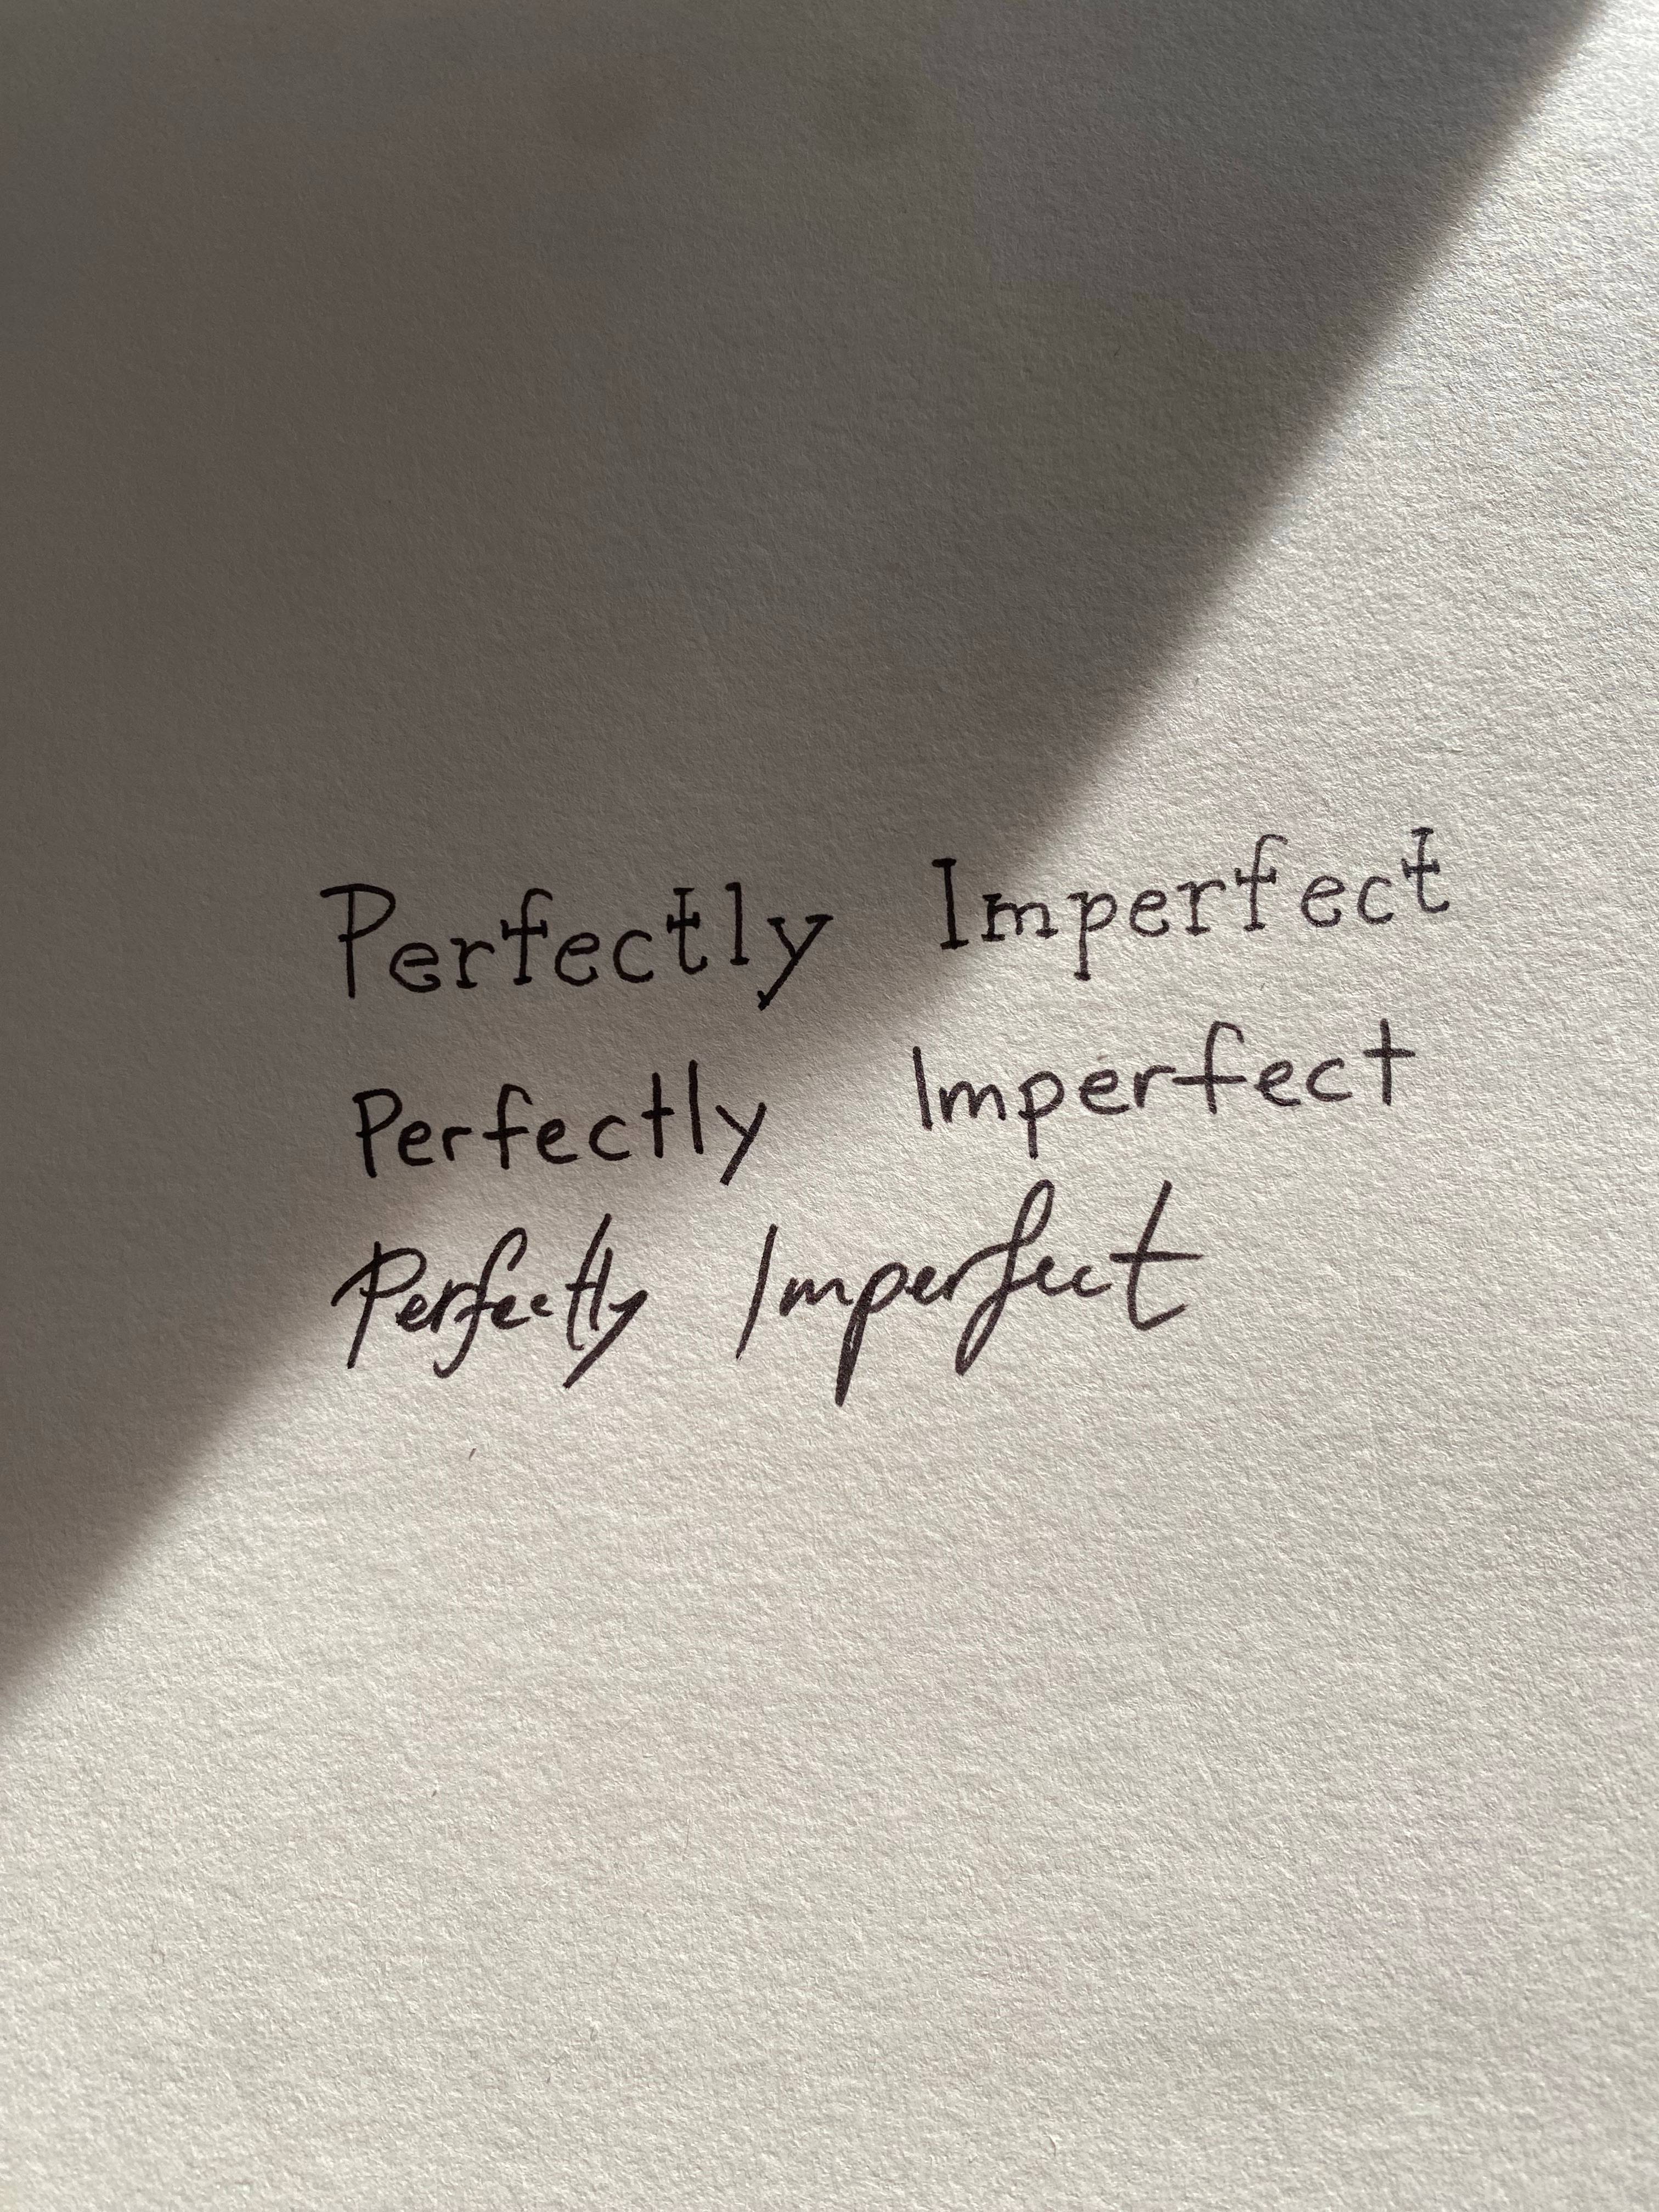 Perfectly Imperfect
Perfectly Imperfect
Perfectly Imperfect